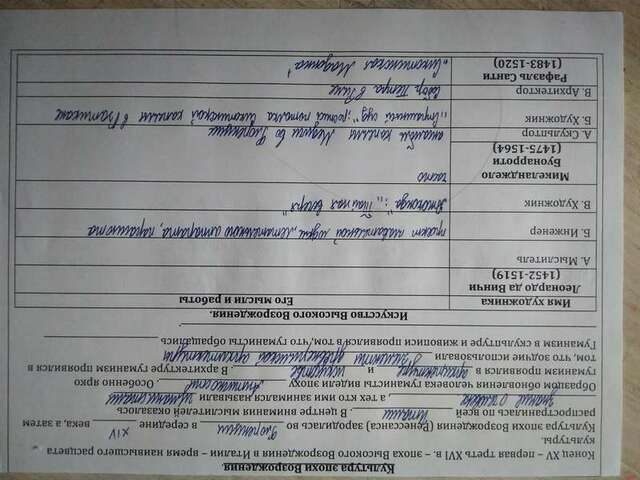 Культура эпохи Возрождения.
Конец XV – первая треть XVI в. – эпоха Высокого Возрождения в Италии – время наивысшего расцвета
культуры.
Культура эпохи Возрождения (Ренессанса) зародилась во Флоренции в середине XIV века, а затем
распространилась по всей Италии. В центре внимания мыслителей оказалось
знание о человеке, а тех кто ими занимался называли гуманистами
Образцом обновления человека гуманисты виделе эпоху Античности. Особенно ярко
гуманизм проявился в архитектуре и искусстве. В архитектуре гуманизм проявился в
том, что зодчие использовали элементы древнеримской архитектуры
Гуманизм в скульптуре и живописи проявился в том, что гуманисты обращались
Искусство Высокого Возрождения.
Имя художника Его мысли и работы
Леонардо да Винчи
(1452-1519)
А. Мыслитель
Б. Инженер проект летательного аппарата, парашюта
В. Художник "Джоконда", "Тайная вечеря"
Микеланджело
Буонарроти
(1475-1564)
А. Скульптор ансамбль капеллы Медичи во Флоренции
Б. Художник "Страшный суд", роспись потолка Сикстинской капеллы в Ватикане
В. Архитектор Собор Петра в Риме
Рафаэль Санти
(1483-1520) "Сикстинская Мадонна"